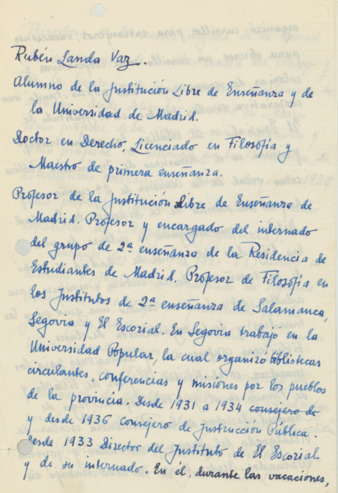 Rubén Landa Vaz.
Alumno de la Institución Libre de Enseñanza y de
la Universidad de Madrid.
Doctor en Derecho, Licenciado en Filosofía y
Maestro de primera enseñanza.
Profesor de la Institución Libre de Enseñanza de
Madrid. Profesor y encargado del internado
del grupo de 2ª enseñanza de la Residencia de
Estudiantes de Madrid. Profesor de Filosofía en
los Institutos de 2ª enseñanza de Salamanca,
Segovia y El Escorial. En Segovia trabajó en la
Universidad Popular, la cual organizó bibliotecas
circulantes, conferencias y misiones por los pueblos
de la provincia. Desde 1931 a 1934 consejero de
y desde 1936 consejero de Instrucción Pública.
Desde 1933 Director del Instituto de El Escorial
y de su internado. En él, durante las vacaciones,